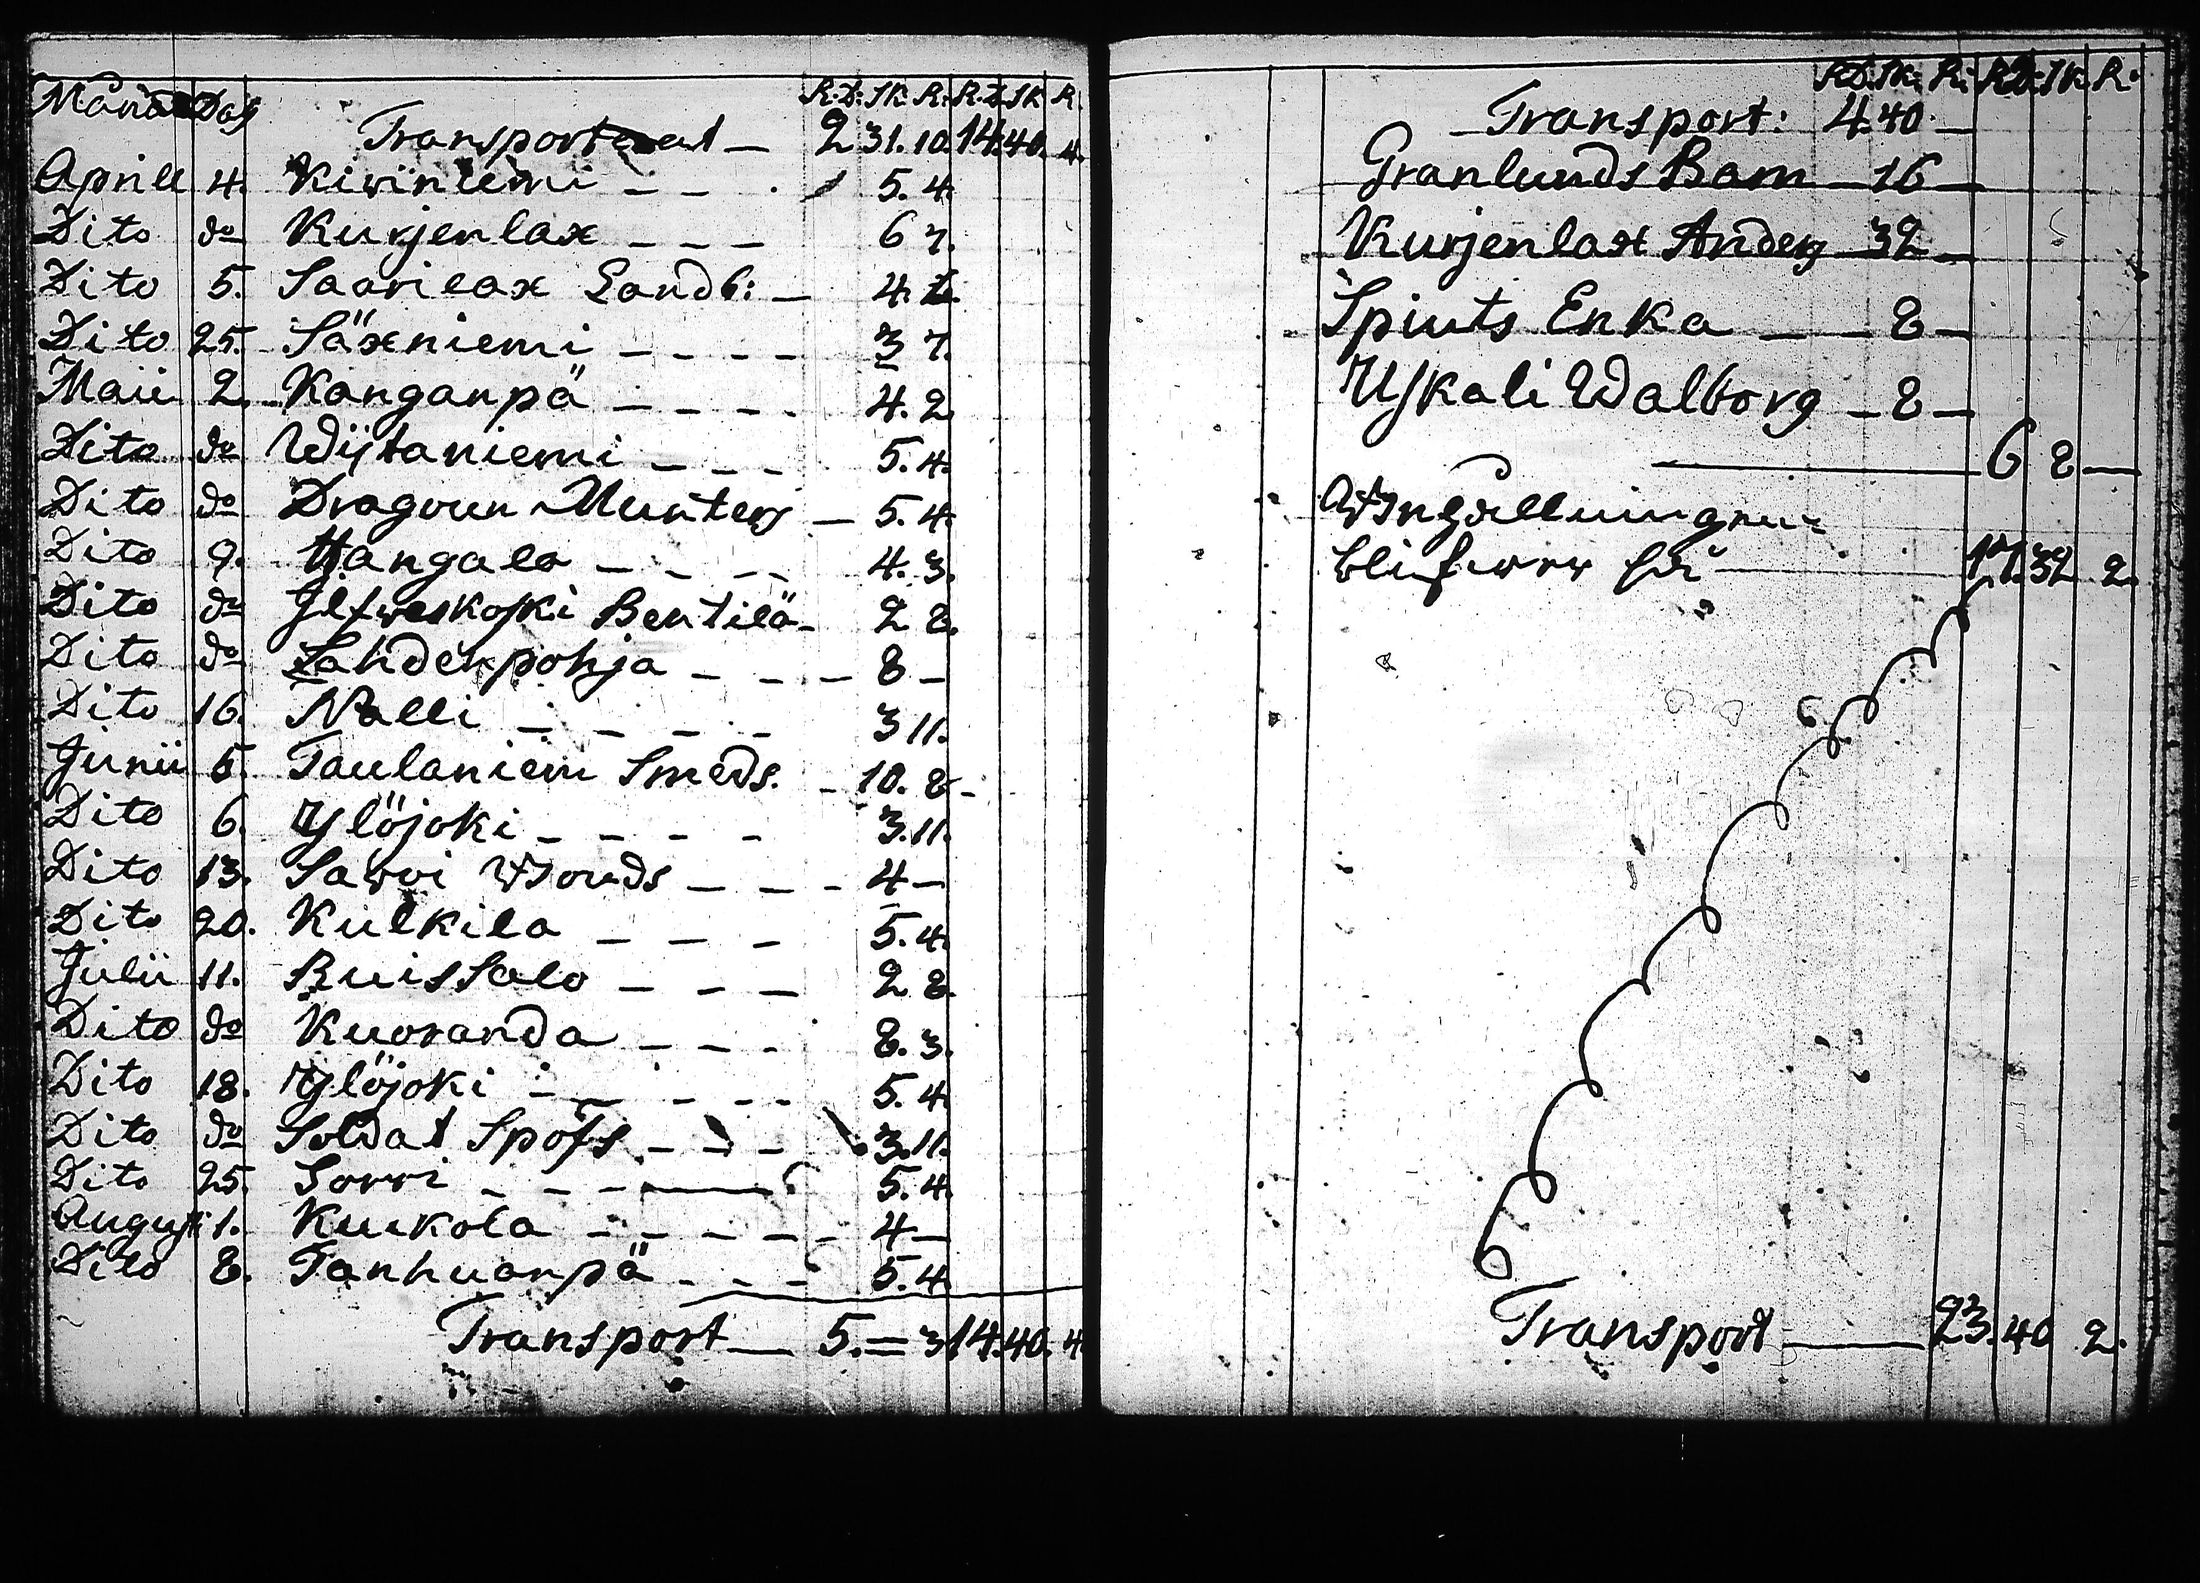 Månad Dag R.D: SK: R: R.D. SK R.
Transporterat — 2 31. 10. 14. 40. 4.
Aprill 4. Kiviniemi — — 5. 4.
Dito do Kurjenlax — — — 6 7.
Dito 5. Saarilax Landb: — 4.
Dito 25. Säxniemi — — — — 3 7.
Maii 2. Kanganpä — — — — 4. 2
Dito do Wijtaniemi — — — 5. 4.
Dito do Dragoun Munters — 5. 4.
Dito 9. Hangala — — — — 4. 3.
Dito do Ilfweskoski Bentilä — 2 8.
Dito do Lahdenpohja — — — 8 —
Dito 16. Nalli — — — — 3 11.
Junii 5. Taulaniemi Smeds. — 10. 8 -
Dito 6. Ylöjoki — — — — 3. 11.
Dito 13. Sawoi — — - 4 —
Dito 20. Kulkila — — — 5. 4.
Julii 11. Ruissalo — — — 2 8.
Dito do Kuoranda — — — 8. 3.
Dito 18. Ylöjoki — — — — 5. 4.
Dito do Soldat Spofs — — — 3. 11.
Dito 25. Sorri — — — 5. 4.
Augusti 1. Kuikola — — — — — 4 —
Dito 8. Tanhuanpä — — — 5. 4.
Transport — 5. = 3 14. 40. 4.
R.D. SK: R: R.D. SK R.
Transport: 4. 40 —
Granlunds Barn — 16 —
Kurjenlax Anders 32 —
Spiuts Enka — — 8 —
Uskali Walborg — 8 —
6 8 —
32 2.
Transport — 23. 40 2.